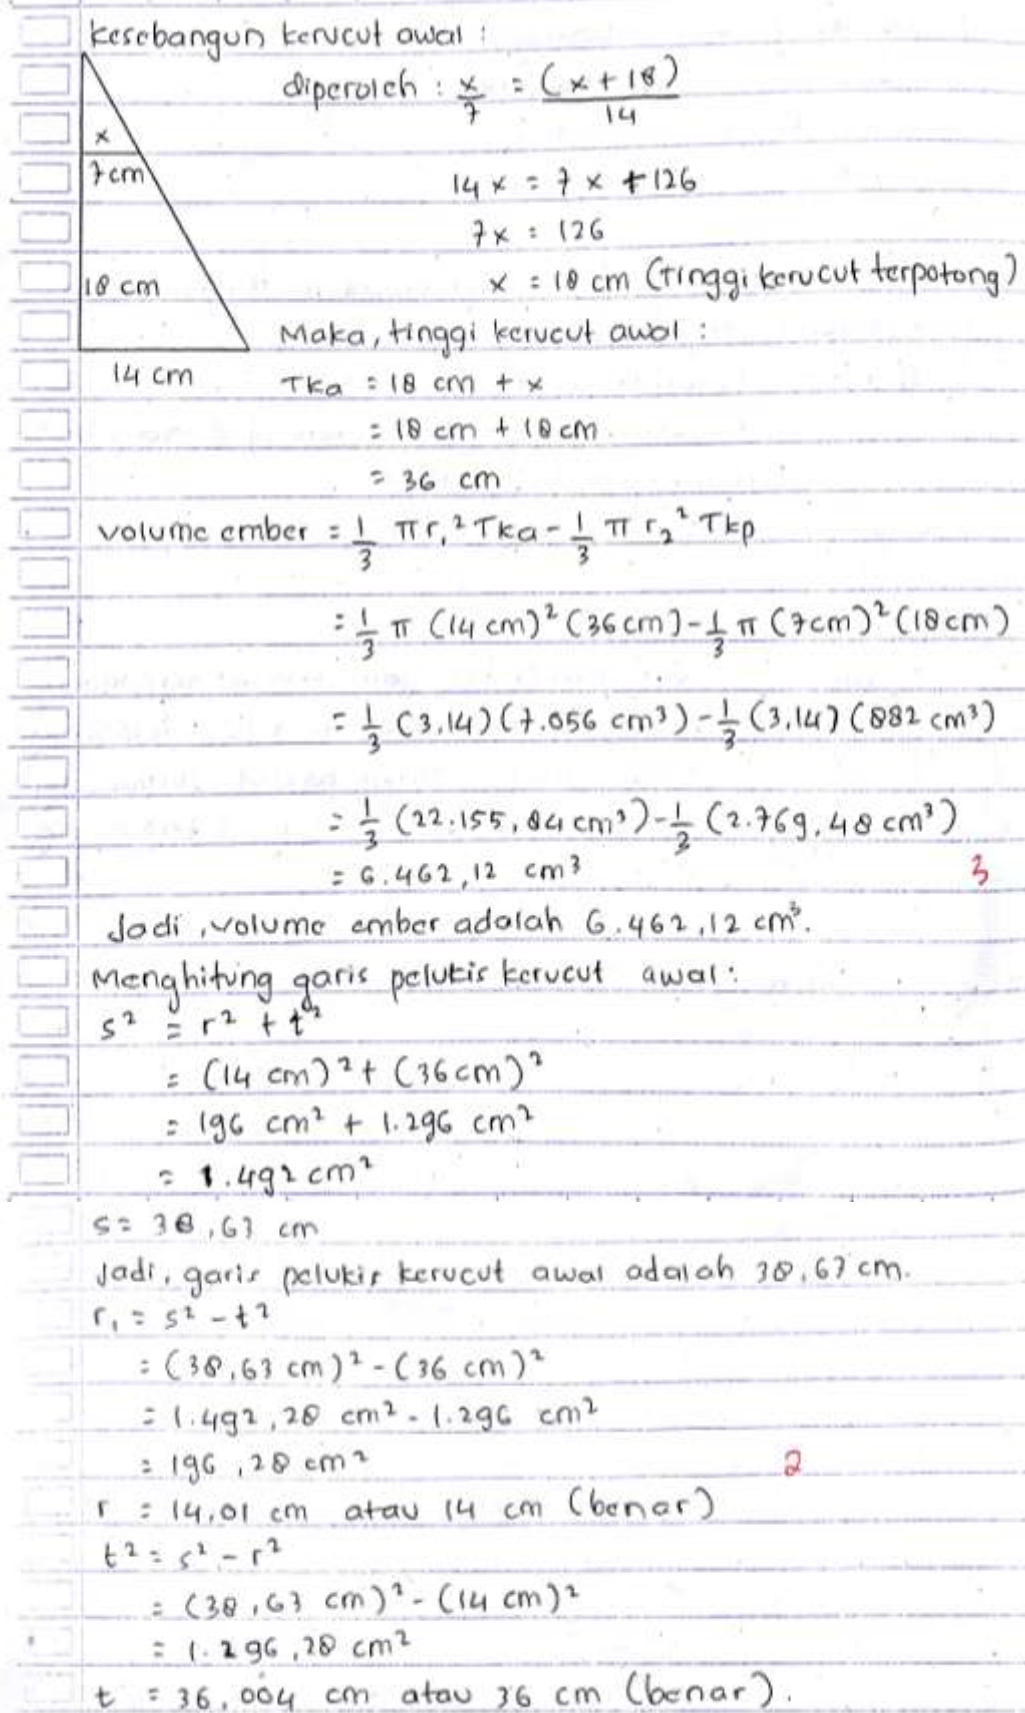 kesebangun kerucut awal :
diperoleh : x/7 = (x + 18)/14
x
7 cm
14 x = 7 x + 126
7x = 126
18 cm
x = 18 cm (tinggi kerucut terpotong)
Maka, tinggi kerucut awal :
14 cm
Tka = 18 cm + x
= 18 cm + 18 cm
= 36 cm
volume ember = 1/3 π r₁² Tka - 1/3 π r₂² Tkp
= 1/3 π (14 cm)² (36 cm) - 1/3 π (7 cm)² (18 cm)
= 1/3 (3,14) (7.056 cm³) - 1/3 (3,14) (882 cm³)
= 1/3 (22.155,84 cm³) - 1/3 (2.769,48 cm³)
= 6.462,12 cm³
3
Jadi, volume ember adalah 6.462,12 cm³.
Menghitung garis pelukis kerucut awal :
s² = r² + t²
= (14 cm)² + (36 cm)²
= 196 cm² + 1.296 cm²
= 1.492 cm²
s = 38,63 cm
Jadi, garis pelukis kerucut awal adalah 38,63 cm.
r₁ = s² - t²
= (38,63 cm)² - (36 cm)²
= 1.492,28 cm² - 1.296 cm²
= 196,28 cm²
2
r = 14,01 cm atau 14 cm (benar)
t² = s² - r²
= (38,63 cm)² - (14 cm)²
= 1.296,28 cm²
t = 36,004 cm atau 36 cm (benar).